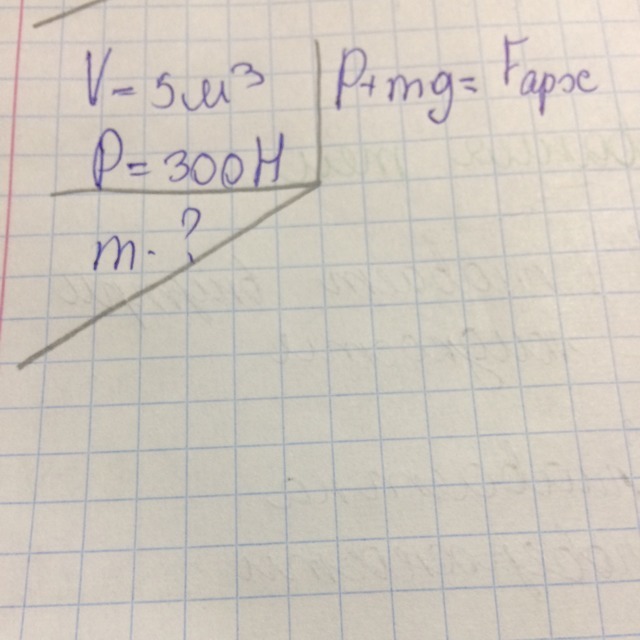 V = 5 м³
P = 300 Н
m - ?
P + mg = Fарх